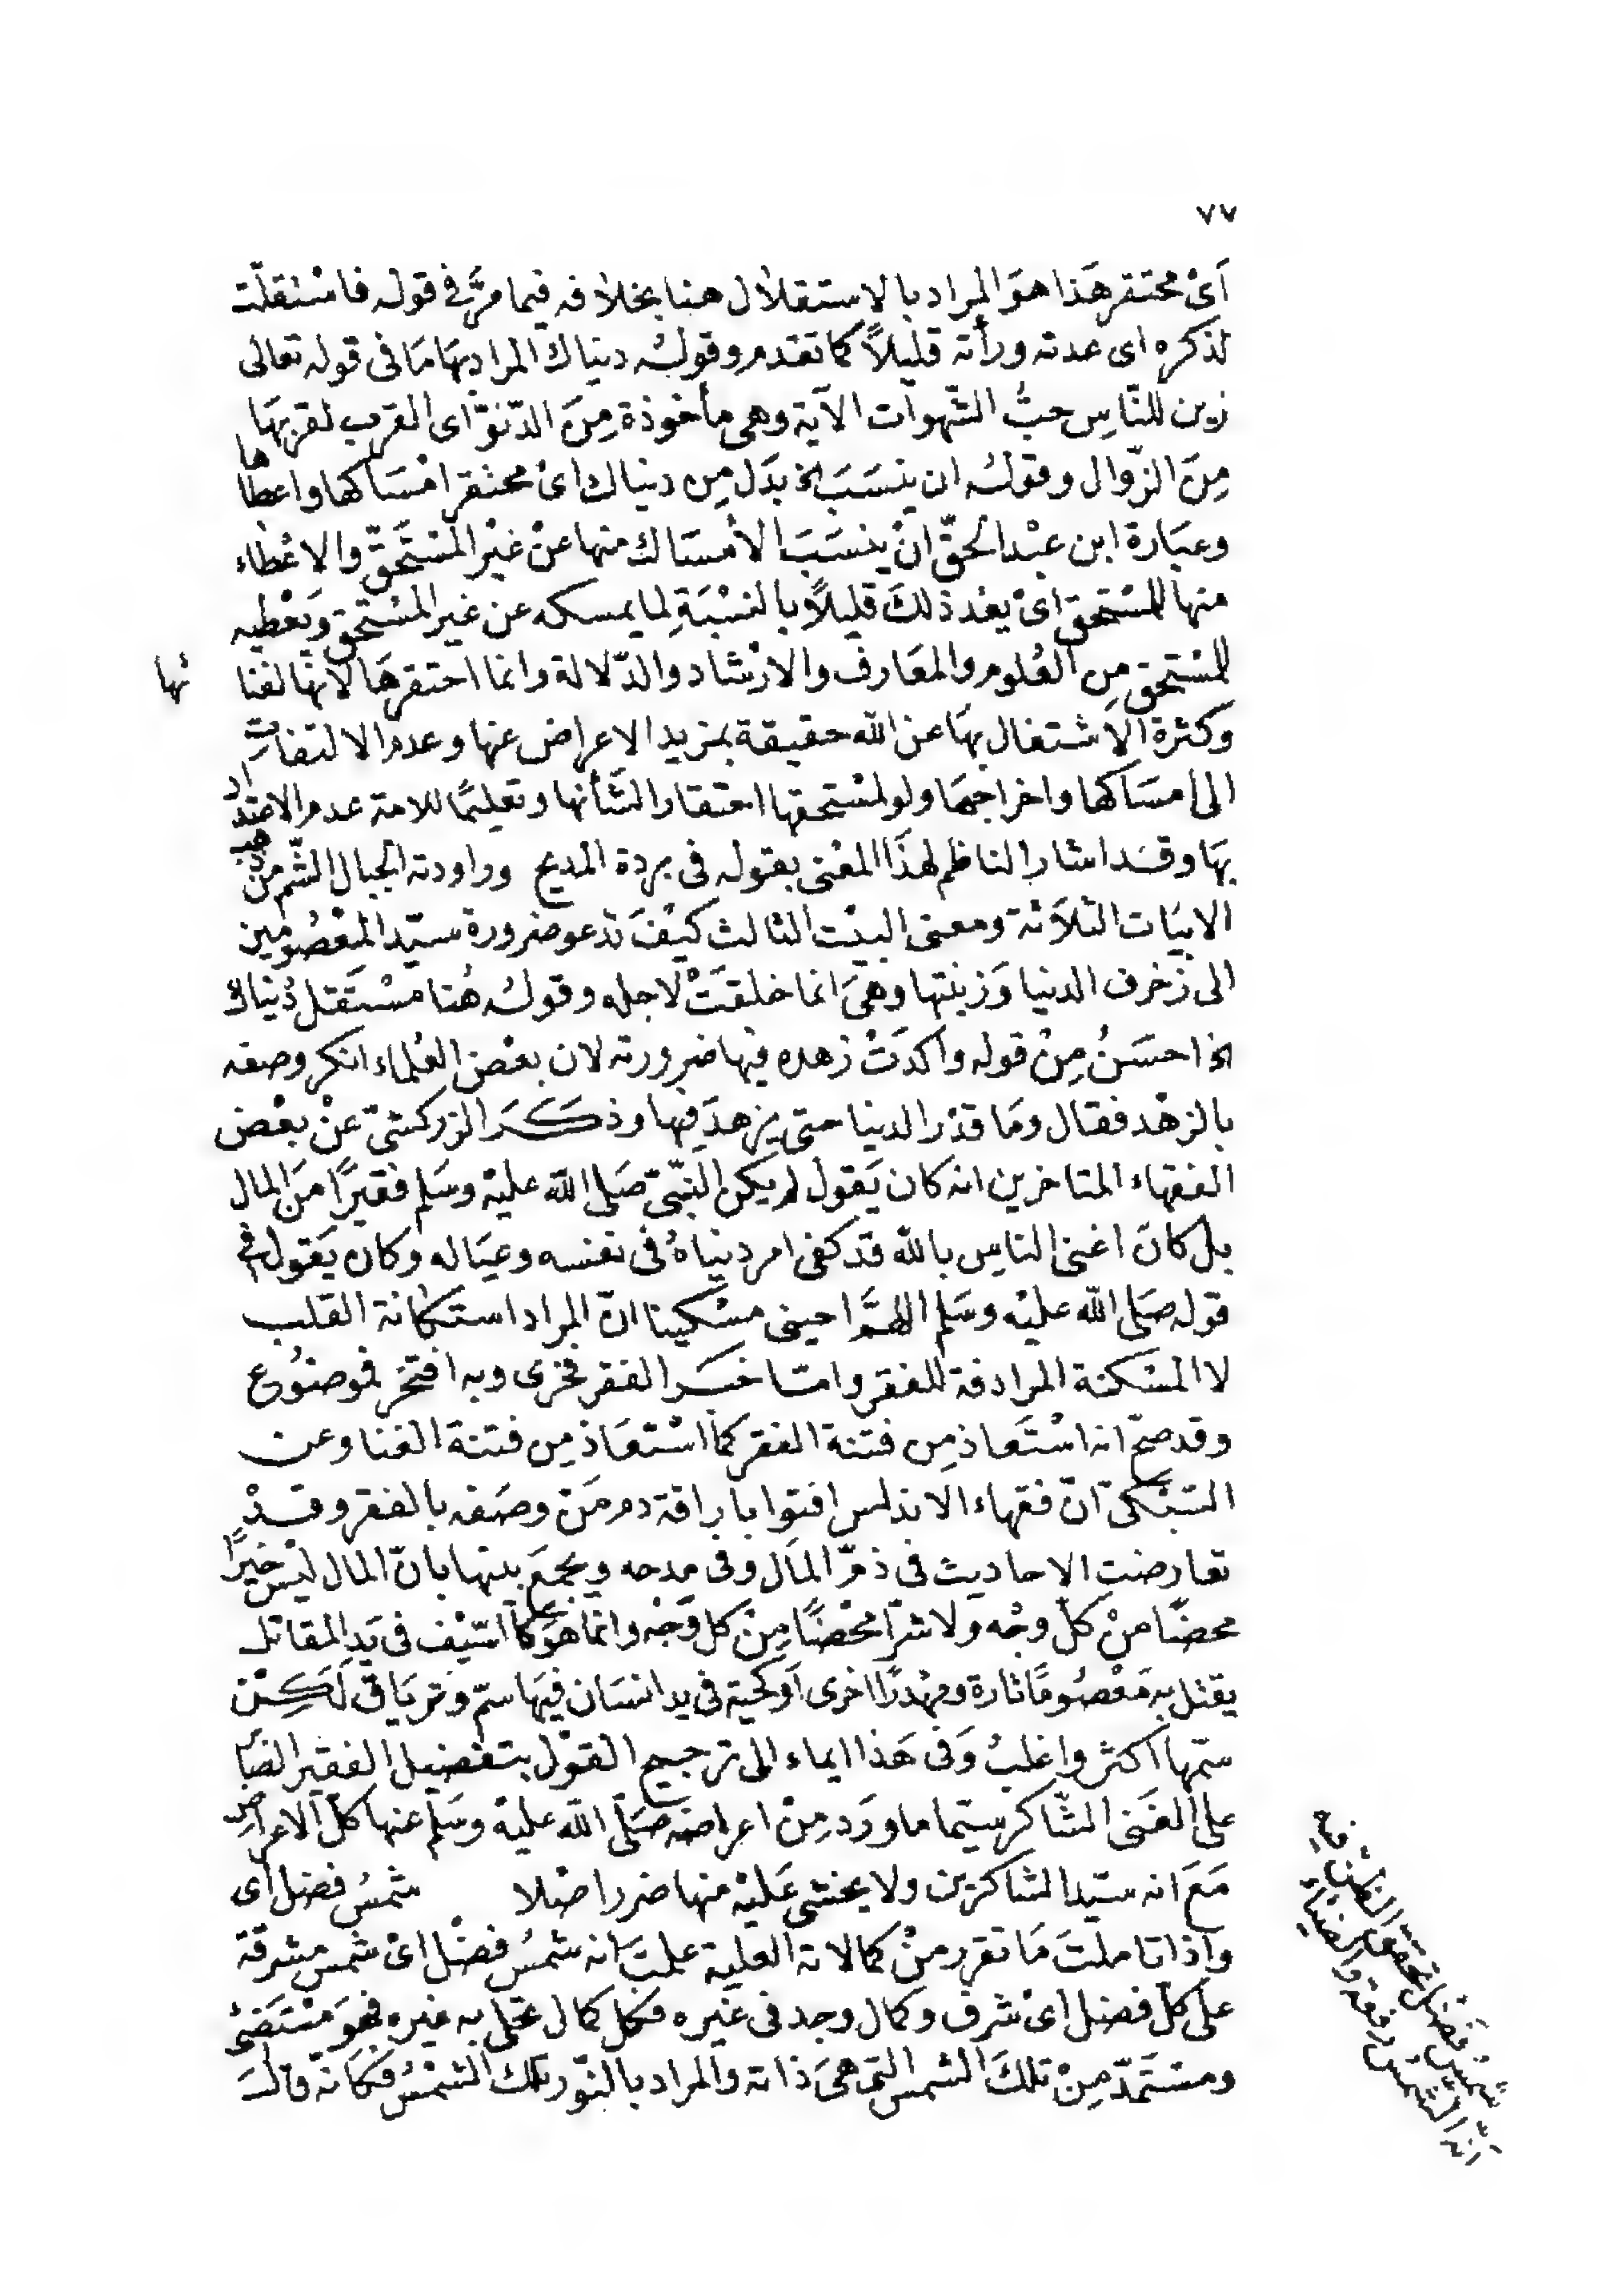 ٧٧
اَىْ محتقر هَذا هوَ المراد بالاستقلال هنا بخلافه فيما مرَّ فى قوله فاسْتقلّت
لذكره اى عدته ورأته قليلاً كما تقدم وقولُه دنياك المراد بهَا مَا فى قوله تعالى
زين للنّاسِ حبُّ الشّهوات الآية وهى مأخوذة مِنَ الدّنوّ اى القرب لقربهَا
مِنَ الزّوال وقولُه ان ينسَبَ الخ بدَل مِن دنياك اىْ محتقر امْسَاكها واعطاها
وعبَارة ابن عبْد الحقّ انْ ينسَبَ الأمسَاك منها عنْ غيْر المسْتَحقّ والاعْطاء
منها للمسْتحق اىْ يعد ذلكَ قليلاً بالنسْبَةِ لما يمسكه عن غير المسْتحق وَيعْطيه
للمسْتحق مِن العُلوم والمعَارف والارْشاد والدّلالة وانما احتقرهَا لانّها لفنائها
وكثرة الاشتغال بهَا عن الله حقيقة بمزيد الاعراض عنها وعدم الالتفات
الى امسَاكها واخراجهَا ولو لمسْتحقها احتقارا لشَأنها وتعليمًا للامة عدم الاعتداد
بهَا وقد اشار الناظم لهذَا المعْنى بقوله فى بردة المديح وراودته الجبال الشّم من ذهب
الابيَات الثلاَثة ومعنى البيْت الثالث كيْفَ تدعو ضرورة سيّد المعْصُومين
الى زخرف الدنيا وَزينتها وهىَ انما خلقَتْ لاجله وقولُه هُنا مسْتَقلّ دُنياك
الخ احسَنُ مِنْ قوله واكدَتْ زهده فيها ضرورته لان بعْض العُلماء انكر وصفه
بالزهْد فقال ومَا قدْر الدنيا حتى يزهدَ فيها وذكَرَ الزركشىّ عنْ بعْض
الفقهاء المتاخرين انه كان يَقول لم يكن النّبىّ صَلى الله عليْه وسَلم فقيرًا مِنَ المال
بل كانَ اغنى الناسِ بالله قد كفى امر دنياهُ فى نفسه وعيَاله وكان يَقول فى
قوله صَلى الله عليْه وسَلم اللهمَّ احينى مسْكينا انّ المراد استكانة القلب
لا المسْكنة المرادفة للفقر وامّا خبَر الفقر فخرى وبه افتخر فموضُوع
وقد صحّ انه اسْتَعاذ مِن فتنة الفقر كما اسْتعَاذ مِن فتنة الغنا وعن
السّبْكىّ انّ فقهاء الاندلس افتوا باراقة دم مَنْ وصَفه بالفقر وقدْ
تعارضت الاحاديث فى ذمّ المال وفى مدحه ويجمَع بينها بانّ المال ليْس خيْرًا
محضًا منْ كل وجْه ولا شرّا محْضًا مِنْ كل وَجْه وانما هوَ كالسّيْف فى يَد المقاتل
يقتل به مَعْصُومًا تارة ومهْدرًا اخرى اَو كحية فى يد انسَان فيهَا سمّ وترياق لكِنْ
سمّها اكثر واغلبُ وَفى هَذا ايماء الى ترجيح القوْل بتفضيل الفقير الصَّابر
على الغَنى الشّاكر سيّما ما ورَد مِنْ اعراضه صَلّى الله عليْه وسَلم عنها كلّ الاعراض
مَعَ انه سيّد الشاكرين ولا يخشى عَليْه منها ضرر اصْلا شمسُ فضل اى
واذا تاملتَ مَا تقرر منْ كمالاته العلية علمتَ انه شمسُ فضْل اىْ شمس مشرقة
على كلّ فضل اىْ شرف وكمال وجد فى غيْره فكل كمال تحلى به غيره فهوَ مسْتَضئ
ومستَمدّ مِنْ تلكَ الشمس التى هىَ ذاته والمراد بالنّور تلك الشمْسُ فكانّه قالَ
شمسُ فضْل تحقق الظنّ فيه
انّه الشمْسُ رفعة والضيَاء